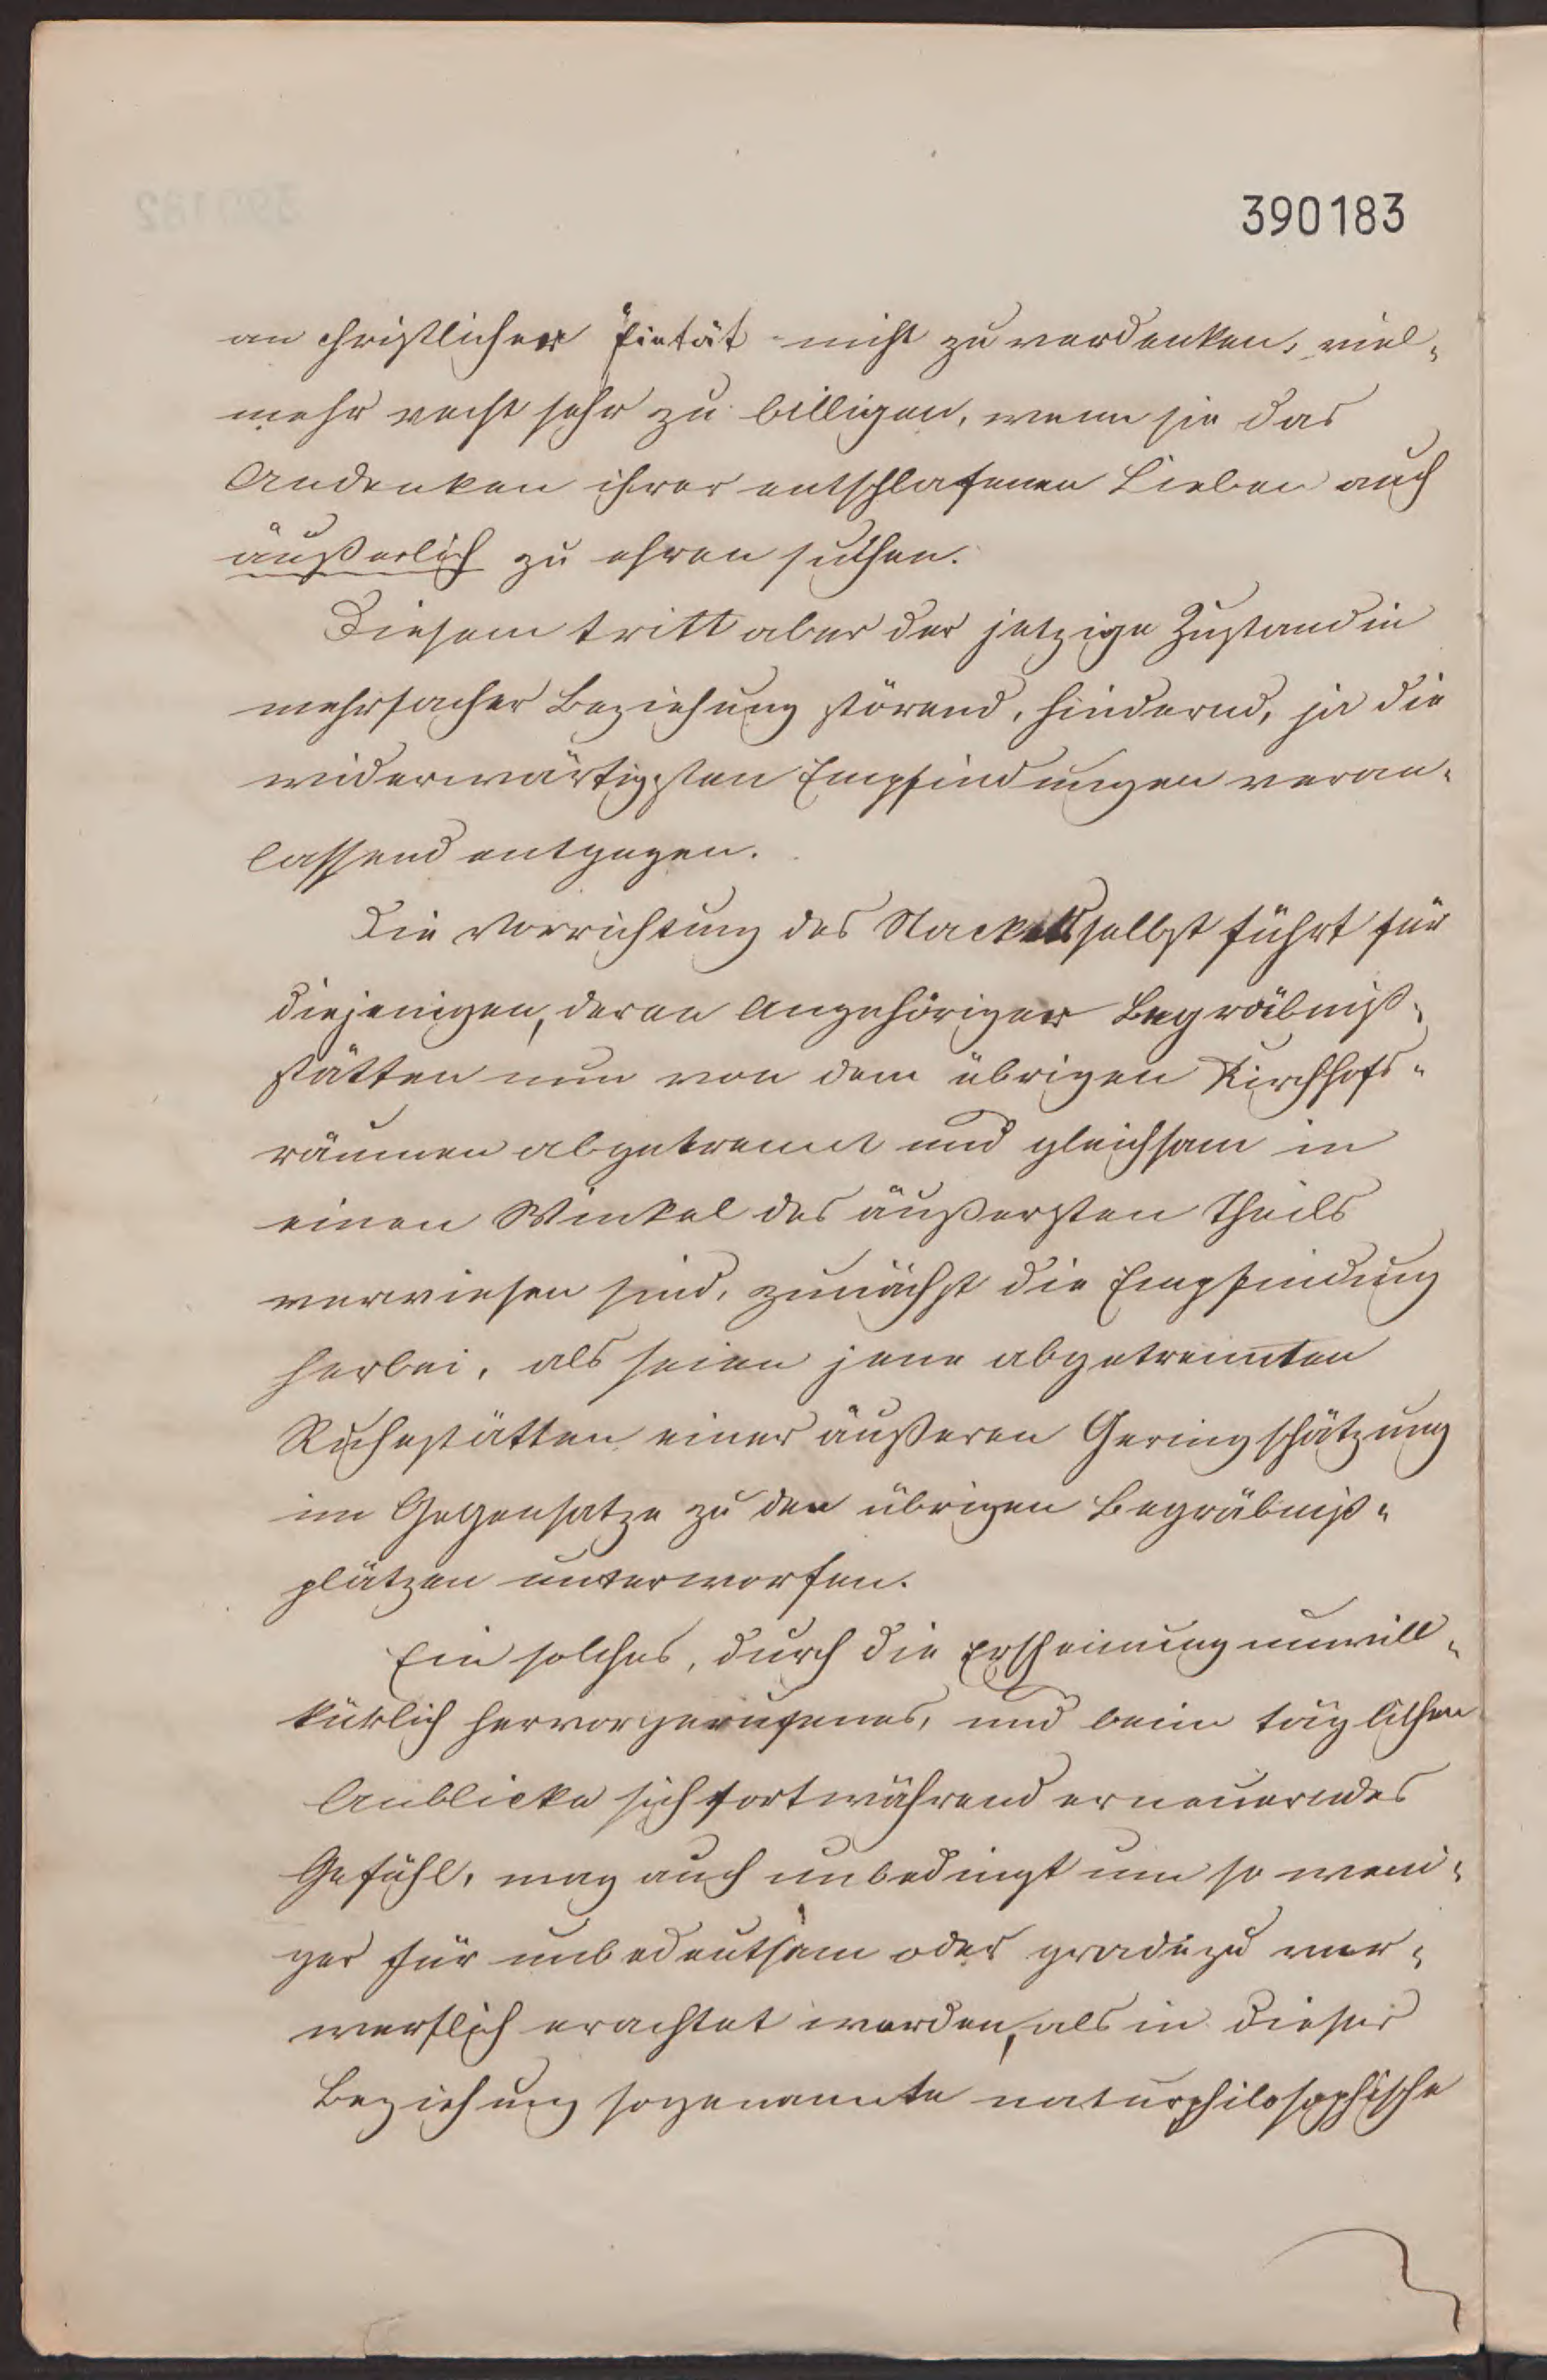 390183
an christlicher Pietät nicht zu verdenken, viel-
mehr recht sehr zu billigen, wenn sie das
Andenken ihrer entschlafenen Lieben auch
äußerlich zu ehren suchen.
Diesem tritt aber der jetzige Zustand in
mehrfacher Beziehung störend, hindernd, ja die
widerwärtigsten Empfindungen veran-
lassend entgegen.
Die Vorrichtung des Stackets selbst führt für
diejenigen, deren Angehöriger Begräbniß-
stätten nun von dem übrigen Kirchhofs-
räumen abgetrennt und gleichsam in
einen Winkel des äußersten Theils
verwiesen sind, zunächst die Empfindung
herbei, als seien jene abgetrennten
Ruhestätten einer äußeren Geringschätzung
im Gegensatze zu den übrigen Begräbniß-
plätzen unterworfen.
Ein solches, durch die Erscheinung unwill-
kürlich hervorgerufenes, und beim täglichen
Anblicke sich fortwährend erneuerndes
Gefühl, mag auch unbedingt um so weni-
ger für unbedeutsam oder gradezu ver-
werflich erachtet werden, als in dieser
Beziehung sogenannte naturphilosophische